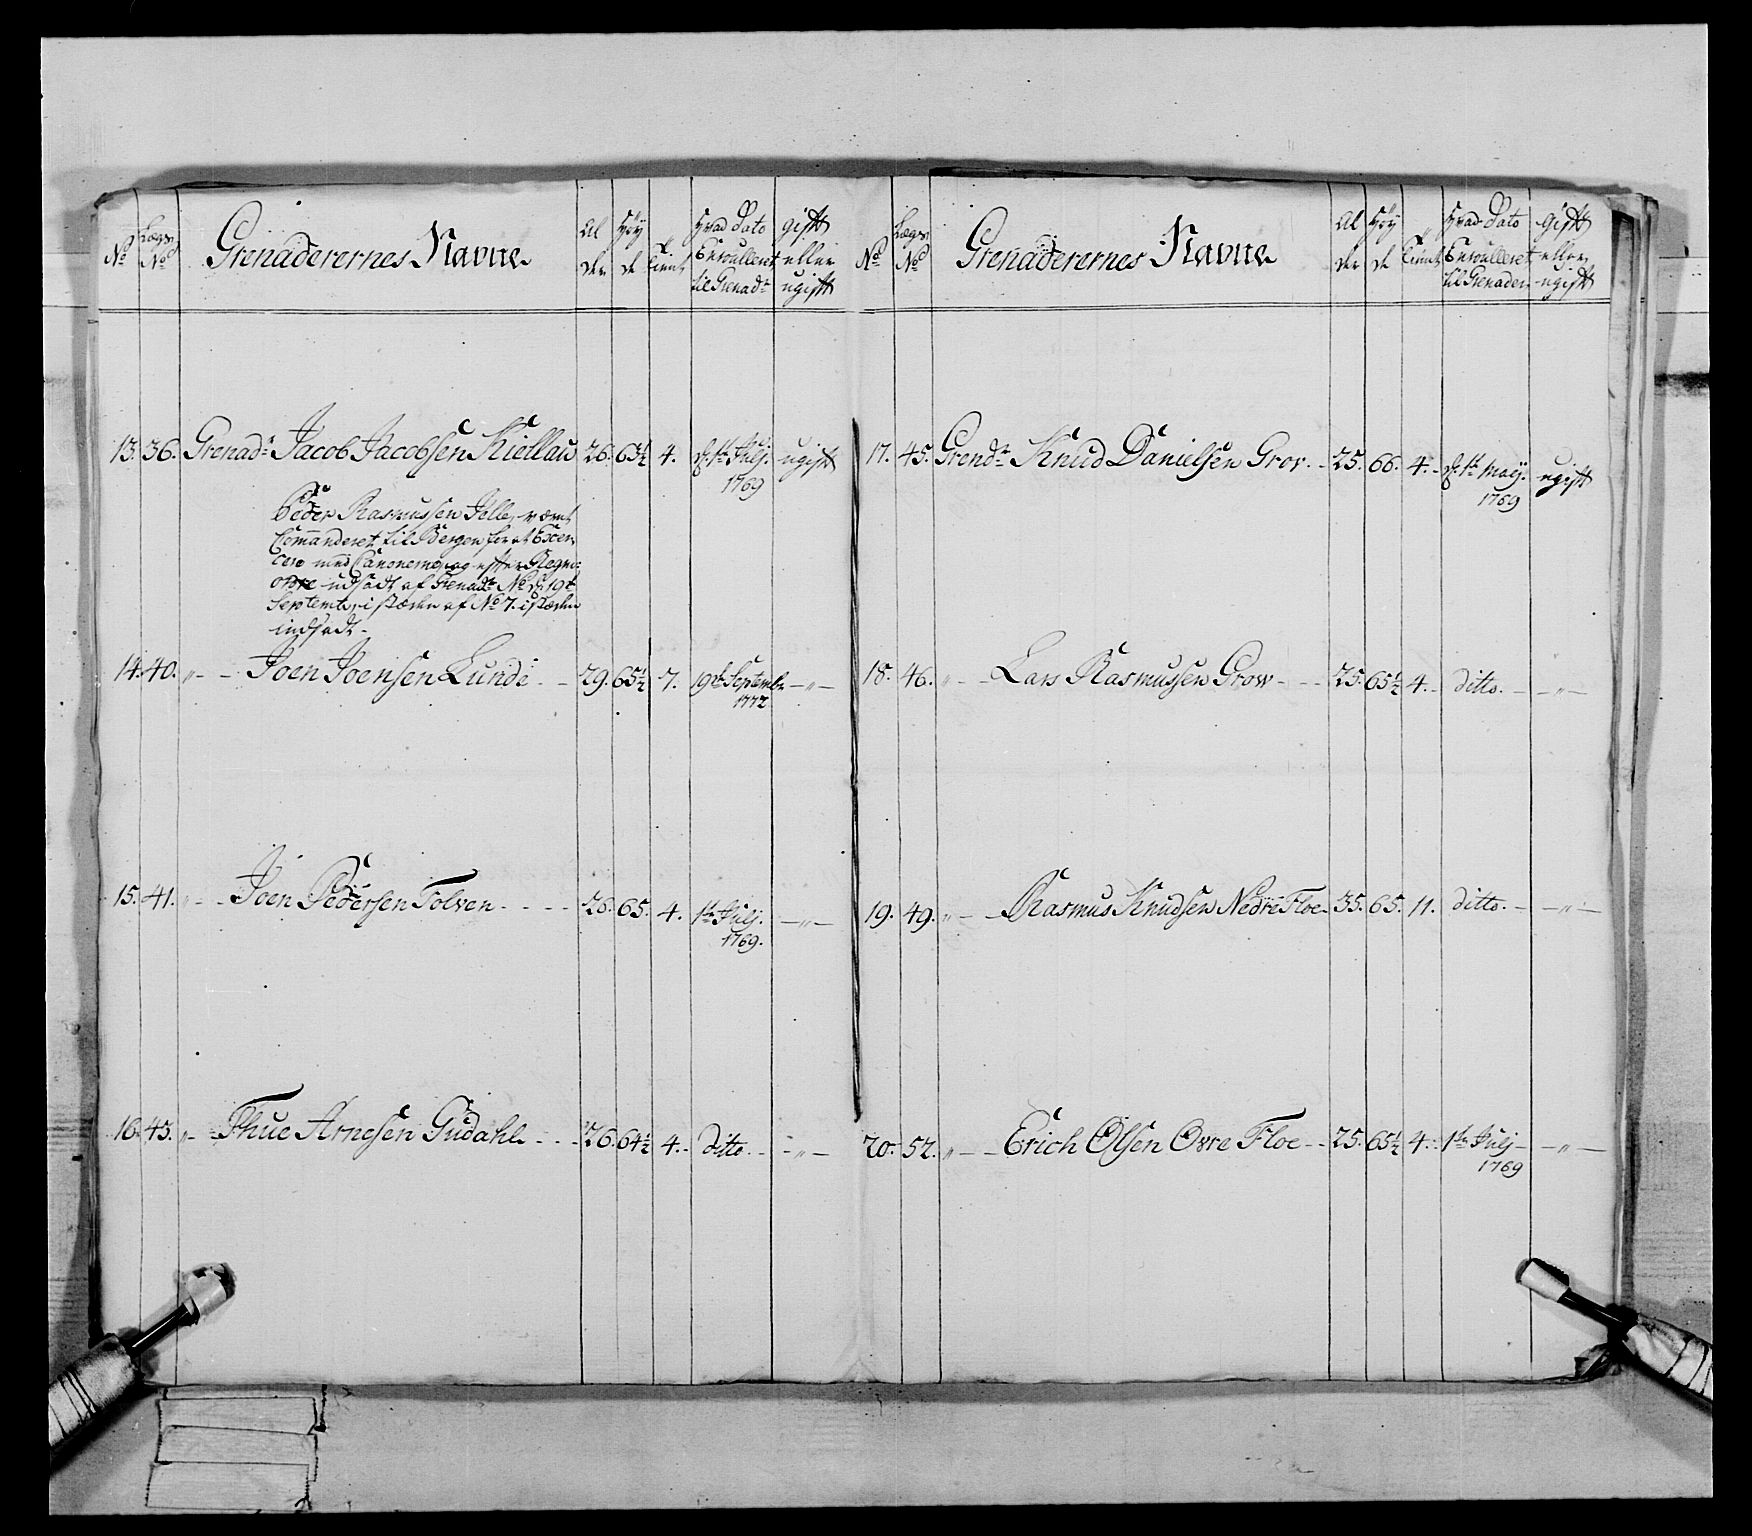 No | Lægs No | Grenaderernes Navne | Al der | Høy de | Tient | Hvad Dato Enroulleret til Grenadr | gift eller ugift
13. 36. Grenadr Jacob Jacobsen Kiellau 26. 63½ 4. d. 1ste Julj. 1769 ugift
Peder Rasmussen Jelle, været
Commanderet til Bergen for at Exer-
cere med Canonerne, og efter Regmts
ordre udsadt af Grenadr No d. 19de
Septembr, i stæden af No 7. i stæden
indsadt.
14. 40. „ Joen Joensen Lunde 29. 65½ 7. 19de Septembr 1772 — „ —
15. 41. „ Joen Pedersen Tolven 26. 65. 4. 1ste Julj. 1769. — „ —
16. 43. „ Thue Arnesen Gudahl 26. 64½ 4. ditto. — „ —
No | Lægs No | Grenaderernes Navne | Al der | Høy de | Tient | Hvad Dato Enroulleret til Grenader | gift eller ugift
17. 45. Grendr Knud Danielsen Grov. 25. 66. 4. d. 1ste Maij. 1769 ugift
18. 46. „ Lars Rasmussen Grov 25. 65½ 4. ditto. — „ —
19. 49. „ Rasmus Knudsen Nedre Floe 35. 65. 11. ditto. — „ —
20. 52. „ Erich Olsen Ovre Floe 25. 65½ 4. 1ste Julj 1769 — „ —